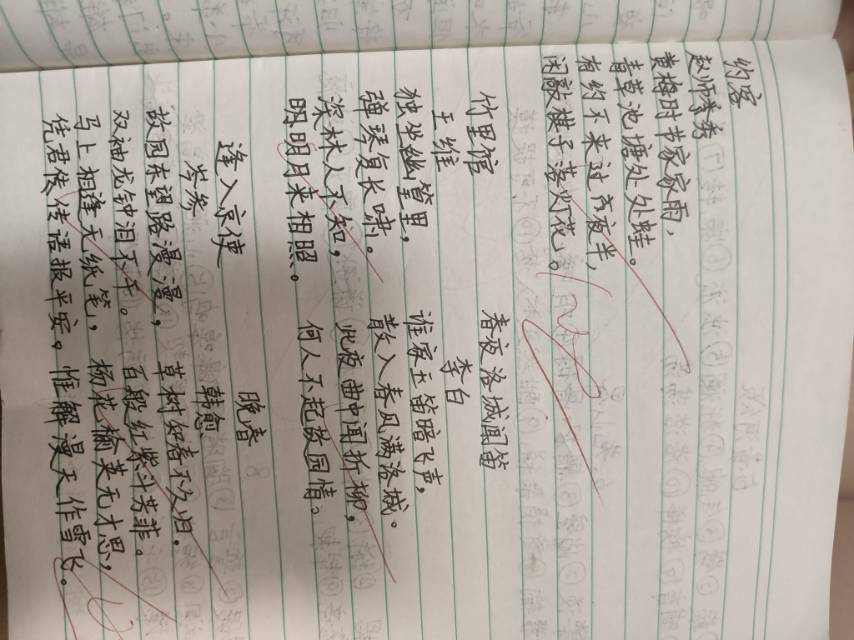 约客
赵师秀
黄梅时节家家雨，
青草池塘处处蛙。
有约不来过夜半，
闲敲棋子落灯花。
竹里馆
王维
独坐幽篁里，
弹琴复长啸。
深林人不知，
明月来相照。
春夜洛城闻笛
李白
谁家玉笛暗飞声，
散入春风满洛城。
此夜曲中闻折柳，
何人不起故园情。
逢入京使
岑参
故园东望路漫漫，
双袖龙钟泪不干。
马上相逢无纸笔，
凭君传语报平安。
晚春
韩愈
草树知春不久归，
百般红紫斗芳菲。
杨花榆荚无才思，
惟解漫天作雪飞。